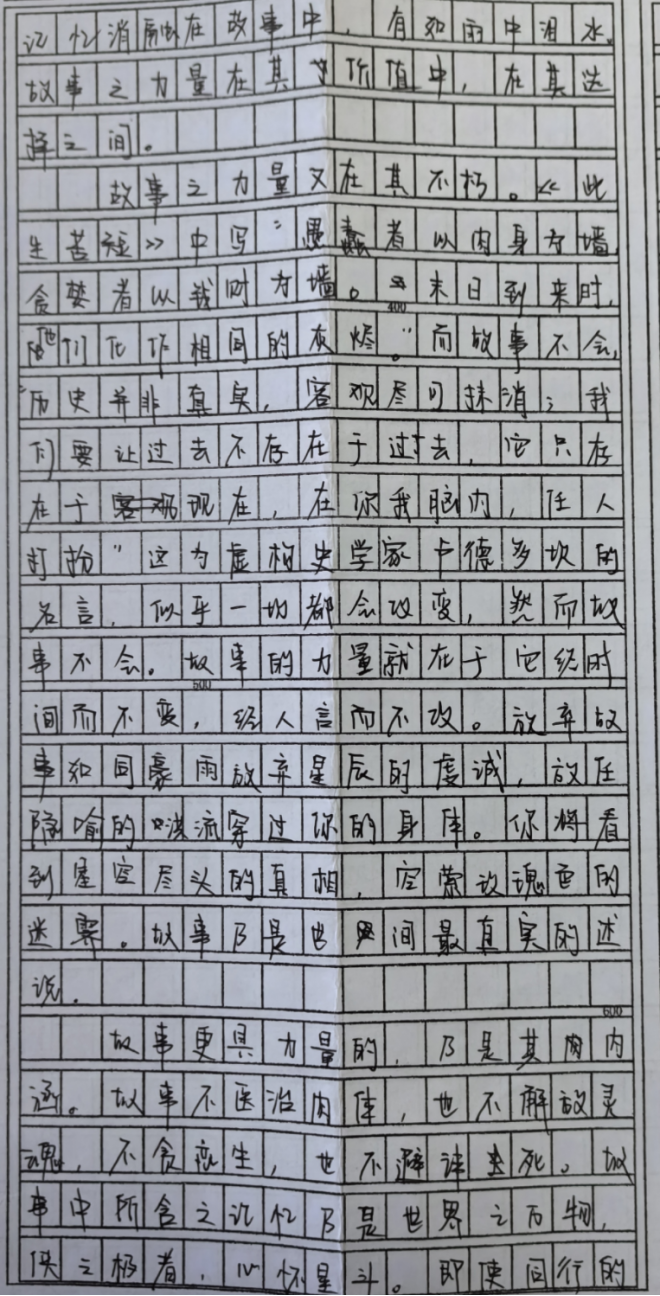 记忆消融在故事中，有如雨中泪水。
故事之力量在其价值中，在其选
择之间。
故事之力量又在其不朽。《此
生苦短》中写“愚蠢者以肉身为墙，
贪婪者以钱财为墙。末日到来时，
400
他们化作相同的灰烬。”而故事不会，
“历史并非真实，客观尽可抹消；我
们要让过去不存在于过去，它只存
在于现在，在你我脑内，任人
打扮”这为虚构史学家卢德多坎的
名言，似乎一切都会改变，然而故
事不会。故事的力量就在于它经时
600
间而不变，经人言而不改。放弃故
事如同豪雨放弃星辰的虔诚，放任
隐喻的洪流穿过你的身体。你将看
到星空尽头的真相，空蒙改魂色的
迷雾。故事乃是世间最真实的述
说。
600
故事更具力量的，乃是其内
涵。故事不医治肉体，也不解放灵
魂，不贪恋生，也不避讳死。故
事中所含之记忆乃是世界之万物，
侠之极者，心怀星斗。即使同行的